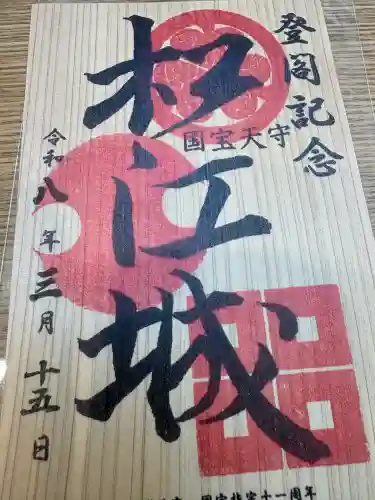 登閣記念
松江城
國宝天守
令和八年三月十五日
国宝指定十一周年